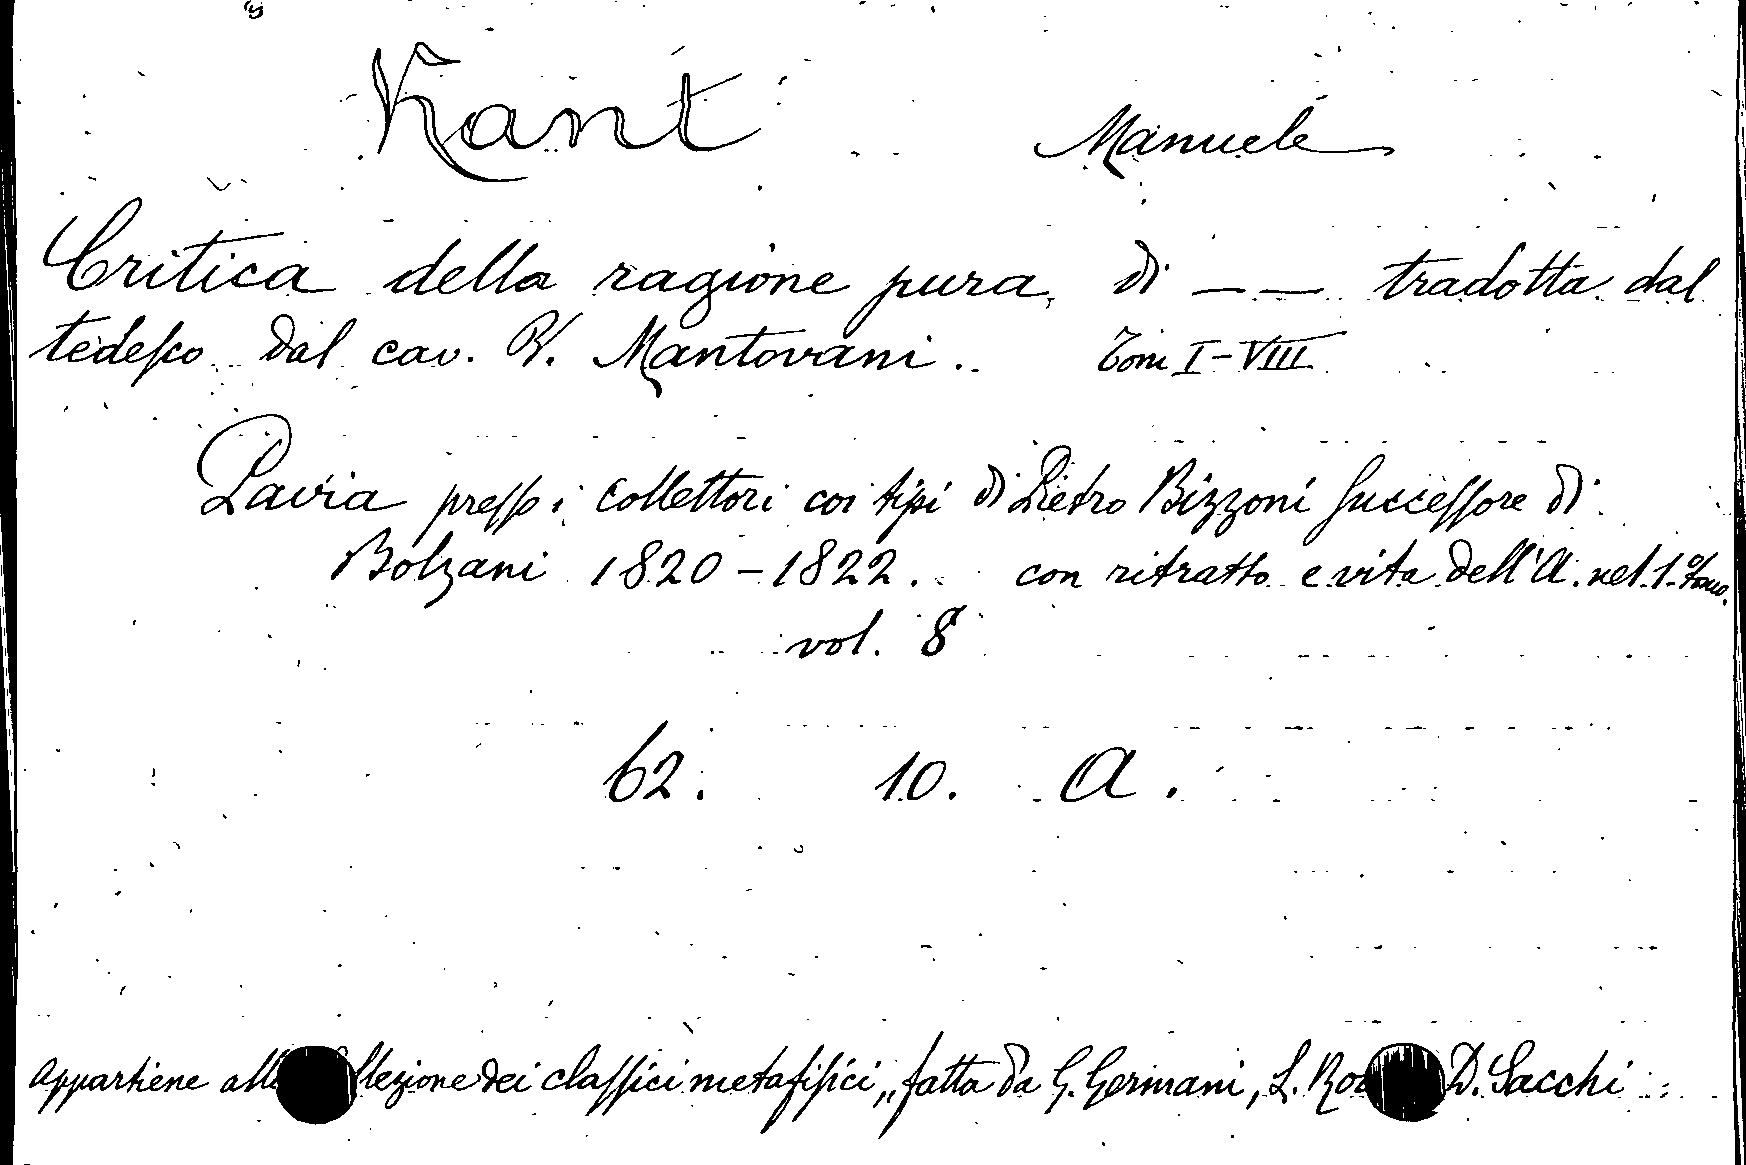 Kant Manuele
Critica della ragione pura, di — — tradotta dal
tedesco dal cav. V. Mantovani. Tomi I-VIII
Pavia presso i Collettori coi tipi di Pietro Bizzoni Successore di
Bolzani 1820-1822. con ritratto e vita dell'A. nel 1.º Tomo.
vol. 8
62. 10. A.
appartiene dei classici metafisici,, fatta da G. Germani, L. D. Sacchi